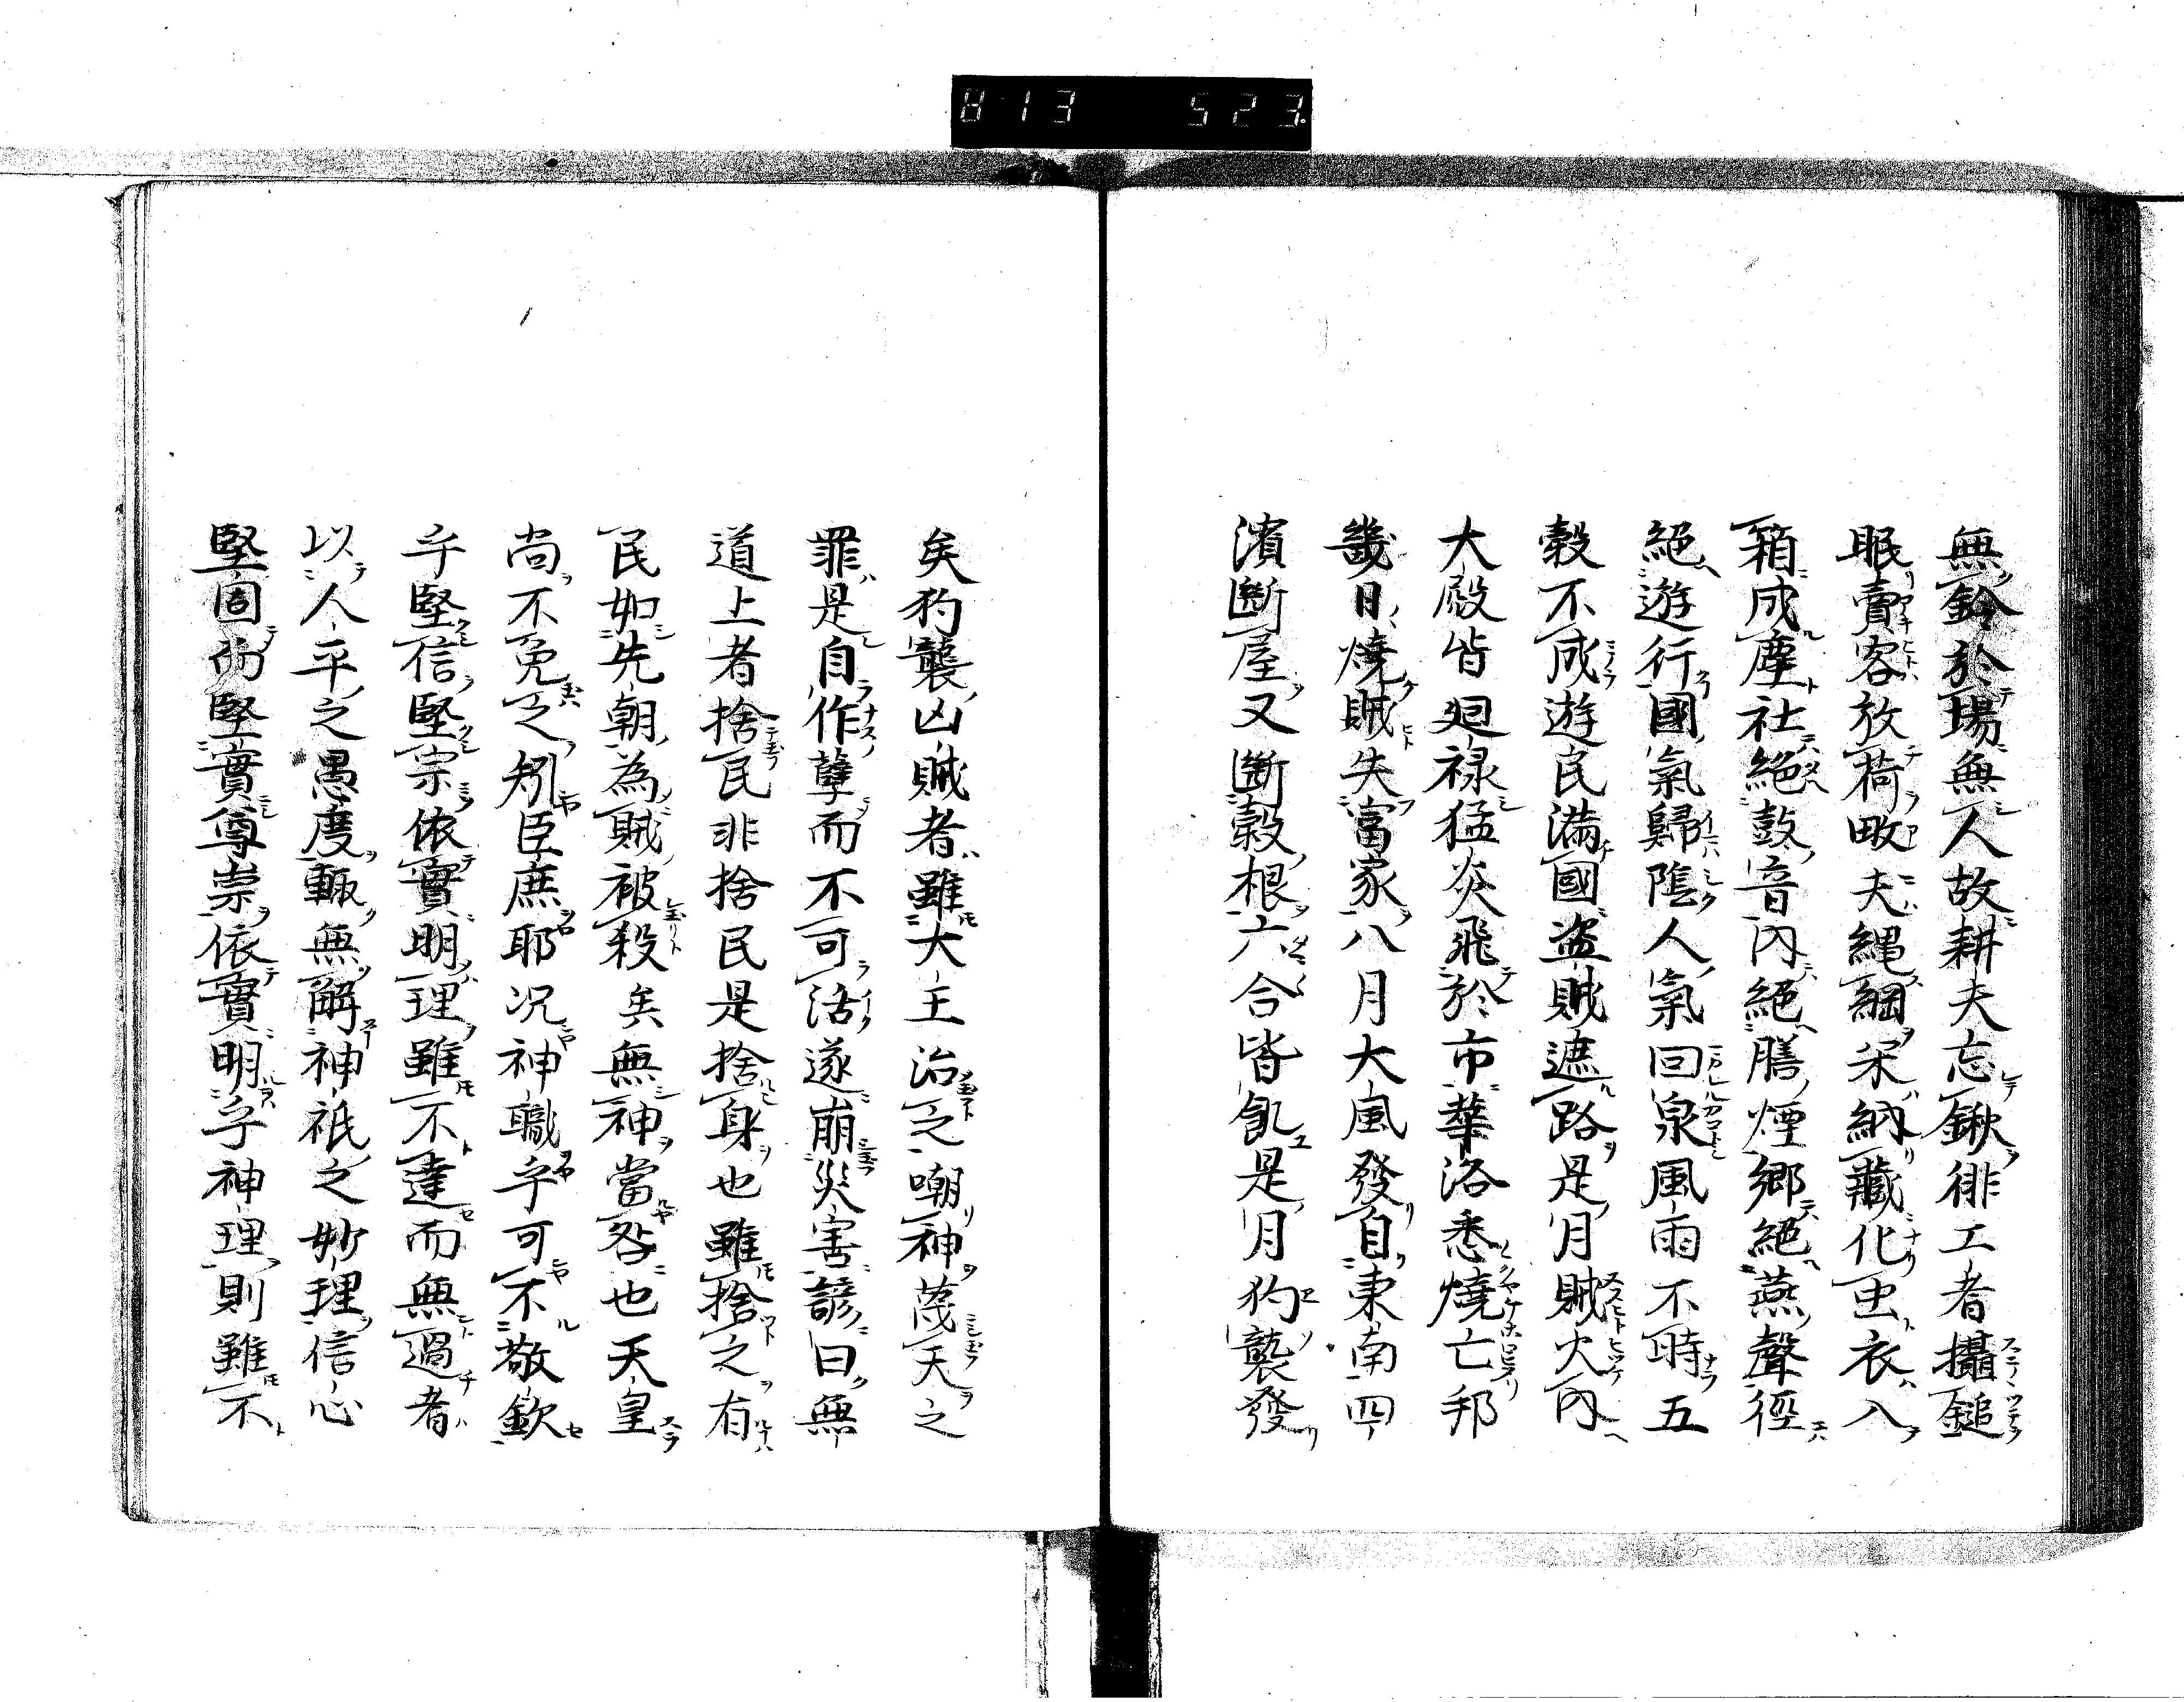 813 523
無鈴於場無人故耕夫忘鍬徘工者攝鎚
眠賣客放荷畋夫縄綱米納藏化虫衣入
箱成塵社絕鼓音內絕膳煙鄉絕燕聲徑
絕遊行國氣歸陰人氣回泉風雨不時五
穀不成遊民滿國盜賊遮路是月賊火內
大殿皆廻禄猛炎飛於市華洛悉燒亡邦
畿日燒賊失富家八月大風發自東南四
濱斷屋又斷穀根六合皆飢是月犳襲發
矣犳襲凶賊者雖大主治之嘲神蔑天之
罪是自作孽而不可活遂崩災害諺曰無
道上者捨民非捨民是捨身也雖捨之有
民如先朝為賊被殺矣無神當咎也天皇
尚不免之矧臣庶耶况神職乎可不敬欽
乎堅信堅宗依實明理雖不達而無過者
以人平之愚度輙無解神祇之妙理信心
堅固而堅實尊崇依實明乎神理則雖不